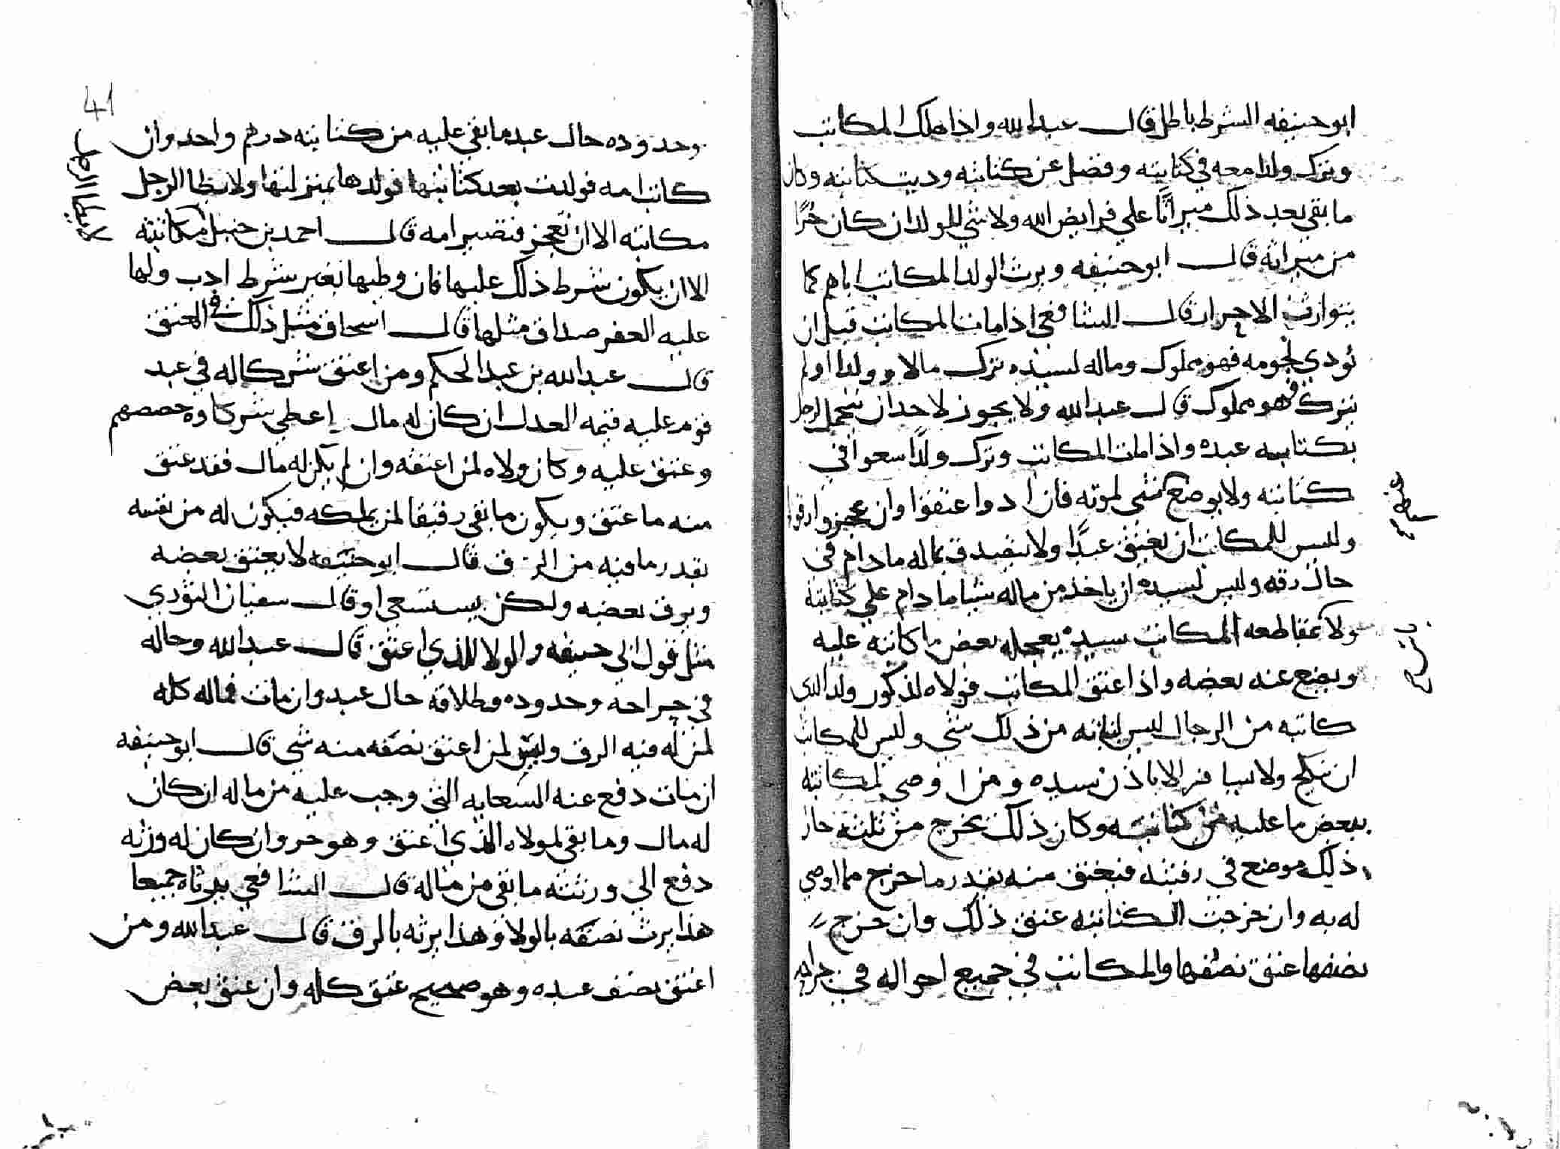 ابو حنيفه الشرط باطل قال عبدالله واذا هلك المكاتب
وترك ولدا معه في كتابته وفضل عن كتابته وديت كتابته وكان
ما بقي بعد ذلك ميراثا علي فرايض الله ولا شي للمولد ان كان حرا
من ميراثه قال ابو حنيفه ويرث الولد المكاتب اباهم كما
يتوارث الاحرار قال الشافعي اذا مات المكاتب قبل ان
يؤدي نجومه فهو مملوك وماله لسيده ترك مالا وولدا او لم
يترك فهو مملوك قال عبدالله ولا يجوز لاحد ان يتحمل لرجل
بكتابه عبده واذا مات المكاتب وترك ولدا سعوا في
كتابته ولا يوضع شي لموته فان ادوا عتقوا وان عجزوا رقوا
وليس للمكاتب ان يعتق عبدا ولا يتصدق بماله ما دام في
حال رقه وليس لسيده ان ياخذ من ماله شيا ما دام علي كتابته
مقاطعه المكاتب سيده يعجله بعض ما كاتبه عليه
ويضع عنه بعضه واذا عتق المكاتب فولاه لذكور ولد الذي
كاتبه من الرجال ليس لبناته من ذلك شي وليس للمكاتب
ان ينكح ولا يسافر الا باذن سيده ومن اوصي لمكاتبه
ببعض ما عليه من كتابته وكان ذلك يخرج من ثلثه جاز
ذلك موضع في رقبته فيعتق منه بقدر ما خرج مما اوصي
له به وان خرجت الكتابه عتق ذلك وان خرج
نصفها عتق نصفها والمكاتب في جميع احواله في جراحه
41
وحدوده حال عبد ما بقي عليه من كتابته درهم واحد وان
كانت امه فولدت بعد كتابتها فولدها بمنزلتها ولا يطا الرجل
مكاتبه الا ان تعجز فتصير امه قال احمد بن حنبل مكاتبته
الا ان يكون شرط ذلك عليها فان وطيها بغير شرط ادب ولها
عليه العقر صداق مثلها قال اسحاق مثل ذلك في العتق
قال عبدالله بن عبد الحكم ومن اعتق شركا له في عبد
قوم عليه قيمه العدل ان كان له مال اعطي شركاوه حصصهم
وعتق عليه وكان ولاه لمن اعتقه وان لم يكن له مال فقد عتق
منه ما عتق ويكون ما بقي رقيقا لمن يملكه فيكون له من نفسه
بقدر ما فيه من الرق قال ابو حنيفه لا يعتق بعضه
ويرق بعضه ولكن يستسعي وقال سفيان الثوري
مثل قول ابي حنيفه والولا للذي اعتق قال عبدالله وحاله
في جراحه وحدوده وطلاقه حال عبد وان مات فماله كله
لمن له فيه الرق وليس لمن اعتق نصفه منه شي قال ابو حنيفه
ان مات دفع عنه السعايه التي وجب عليه من ماله ان كان
له مال وما بقي لمولاه الذي اعتق وهو حر وان كان له ورثه
دفع الي ورثته ما بقي من ماله قال الشافعي يرثاه جميعا
هذا يرث نصفه بالولا وهذا يرثه بالرق قال عبدالله ومن
اعتق نصف عبده وهو صحيح عتق كله وان عتق بعض
لا يطا الرجل